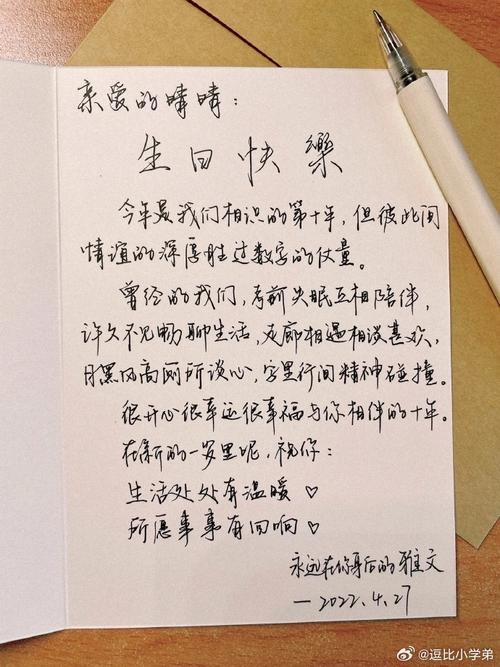 亲爱的晴晴：
生日快樂
今年是我们相识的第十年，但彼此间
情谊的深厚胜过数字的仗量。
曾经的我们，考前失眠互相陪伴，
许久不见畅聊生活，走廊相遇相谈甚欢，
月黑风高厕所谈心，字里行间精神碰撞。
很开心很幸运很幸福与你相伴的十年。
在新的一岁里呢，祝你：
生活处处有温暖♡
所愿事事有回响♡
永远在你身后的雅文
—2022.4.27
@逗比小学弟